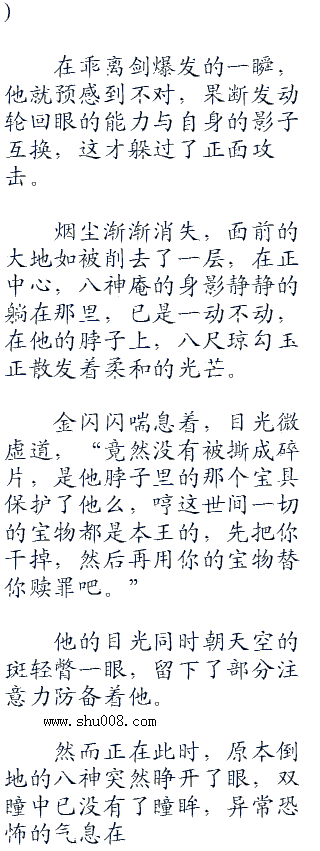 )
在乖离剑爆发的一瞬，
他就预感到不对，果断发动
轮回眼的能力与自身的影子
互换，这才躲过了正面攻
击。
烟尘渐渐消失，面前的
大地如被削去了一层，在正
中心，八神庵的身影静静的
躺在那里，已是一动不动，
在他的脖子上，八尺琼勾玉
正散发着柔和的光芒。
金闪闪喘息着，目光微
虚道，“竟然没有被撕成碎
片，是他脖子里的那个宝具
保护了他么，哼这世间一切
的宝物都是本王的，先把你
干掉，然后再用你的宝物替
你赎罪吧。”
他的目光同时朝天空的
斑轻瞥一眼，留下了部分注
意力防备着他。
www.shu008.com
然而正在此时，原本倒
地的八神突然睁开了眼，双
瞳中已没有了瞳眸，异常恐
怖的气息在